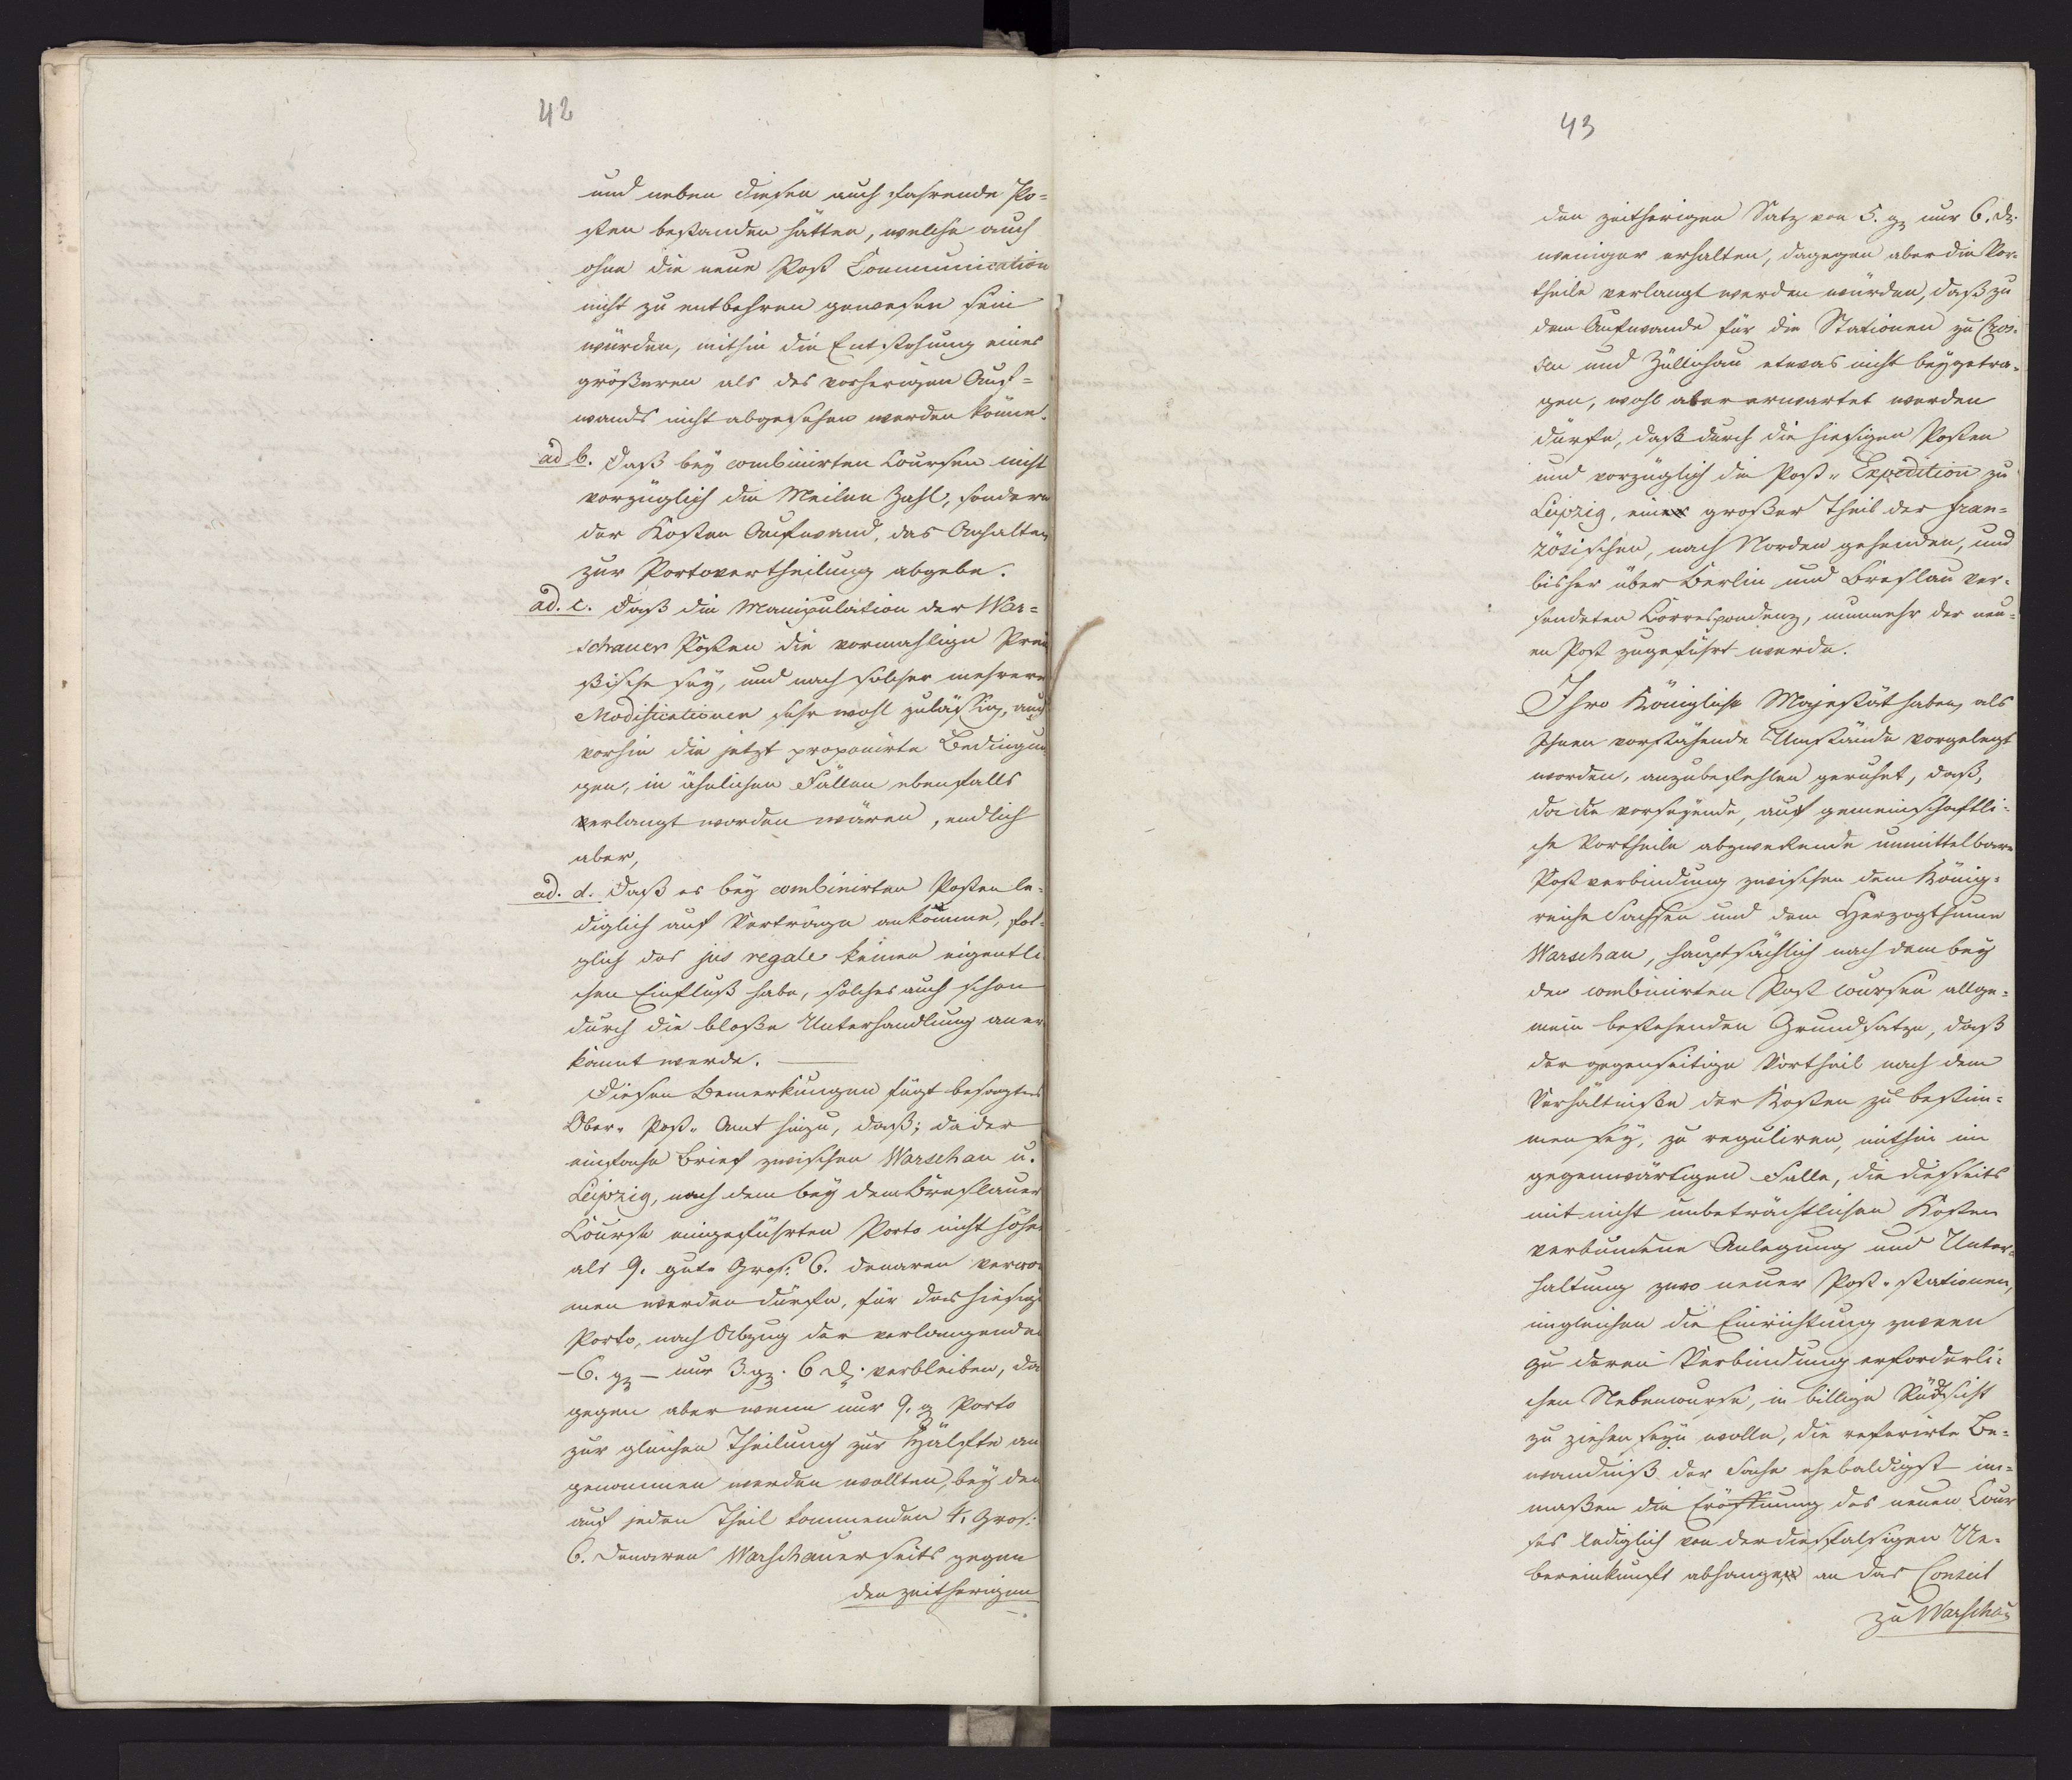 42
und neben diesen auch fahrende Po=
sten bestanden hätten, welche auch
ohne die neue Post Communication
nicht zu entbehren gewesen sein
würden, mithin die Entstehung eines
größeren als des vorherigen Auf=
wands nicht abgesehen werden könne.
ad b. daß bey combinirten Coursen nicht
vorzüglich die Meilen Zahl, sondern
der Kosten Aufwand, das Anhalten
zur Portovertheilung abgebe.
ad. c. daß die Manipulation der War=
schauer Posten die vormahlige Preu
ßische sey, und nach solcher mehrere
Modificationen sehr wohl zuläßig, auch
vorhin die jetzt proponirte Bedingun
gen, in ähnlichen Fällen ebenfalls
verlangt worden wären, endlich
aber,
ad. d. daß es bey combinirten Posten le=
diglich auf Verträge ankomme, fol=
glich das jus regale keinen eigentli
chen Einfluß habe, solches auch schon
durch die bloße Unterhandlung aner
kannt werde.
Diesen Bemerkungen fügt besagtes
Ober- Post- Amt hinzu, daß; da der
einfache Brief zwischen Warschau u.
Leipzig, nach dem bey dem Breslauer
Course eingeführten Porto nicht höher
als 9. gute Gros: 6. denaren vernom
men werden dürfe, für das hiesige
Porto, nach Abzug der verlangenden
– 6. g – nur 3. g. 6 d. verbleiben, da
gegen aber wenn nur 9. g Porto
zur gleichen Theilung zur Hälfte an
genommen werden wollten, bey den
auf jeden Theil kommenden 4. Gros:
6. denaren Warschauerseits gegen
den zeitherigen
43
den zeitherigen Satz von 5. g nur 6. d.
weniger erhalten, dagegen aber die Vor=
theile verlangt werden würden, daß zu
dem Aufwande für die Stationen zu Cros=
sen und Züllichau etwas nicht beygetra=
gen, wohl aber erwartet werden
dürfe, daß durch die hiesigen Posten
und vorzüglich die Post- Expedition zu
Leipzig, ein großer Theil der fran=
zösischen, nach Norden gehenden, und
bisher über Berlin und Breslau ver=
sendeten Correspondenz, nunmehr der neu=
en Post zugeführt werde.
Ihro Königliche Majestät haben, als
Ihnen vorstehende Umstände vorgelegt
worden, anzubefehlen geruhet, daß,
da die vorseyende, auf gemeinschaftli=
che Vortheile abzweckende unmittelbare
Postverbindung zwischen dem König=
reiche Sachsen und dem Herzogthume
Warschau, hauptsächlich nach dem bey
den combinirten Post coursen allge=
mein bestehenden Grundsatze, daß
der gegenseitige Vortheil nach dem
Verhältniße der Kosten zu bestim=
men sey, zu reguliren, mithin im
gegenwärtigen Falle, die dießeits
mit nicht unbeträchtlichen Kosten
verbundene Anlegung und Unter=
haltung zwo neuer Post- stationen,
ingleichen die Einrichtung zween
zu deren Verbindung erforderli=
chen Nebencourse, in billige Rücksicht
zu ziehen seyn wolle, die referirte Be=
wandniß der Sache ehebaldigst im=
maßen die Eröffnung des neuen Cour
ses lediglich von der diesfalsigen Ue=
bereinkunft abhange, an das Conseil
zu Warschau